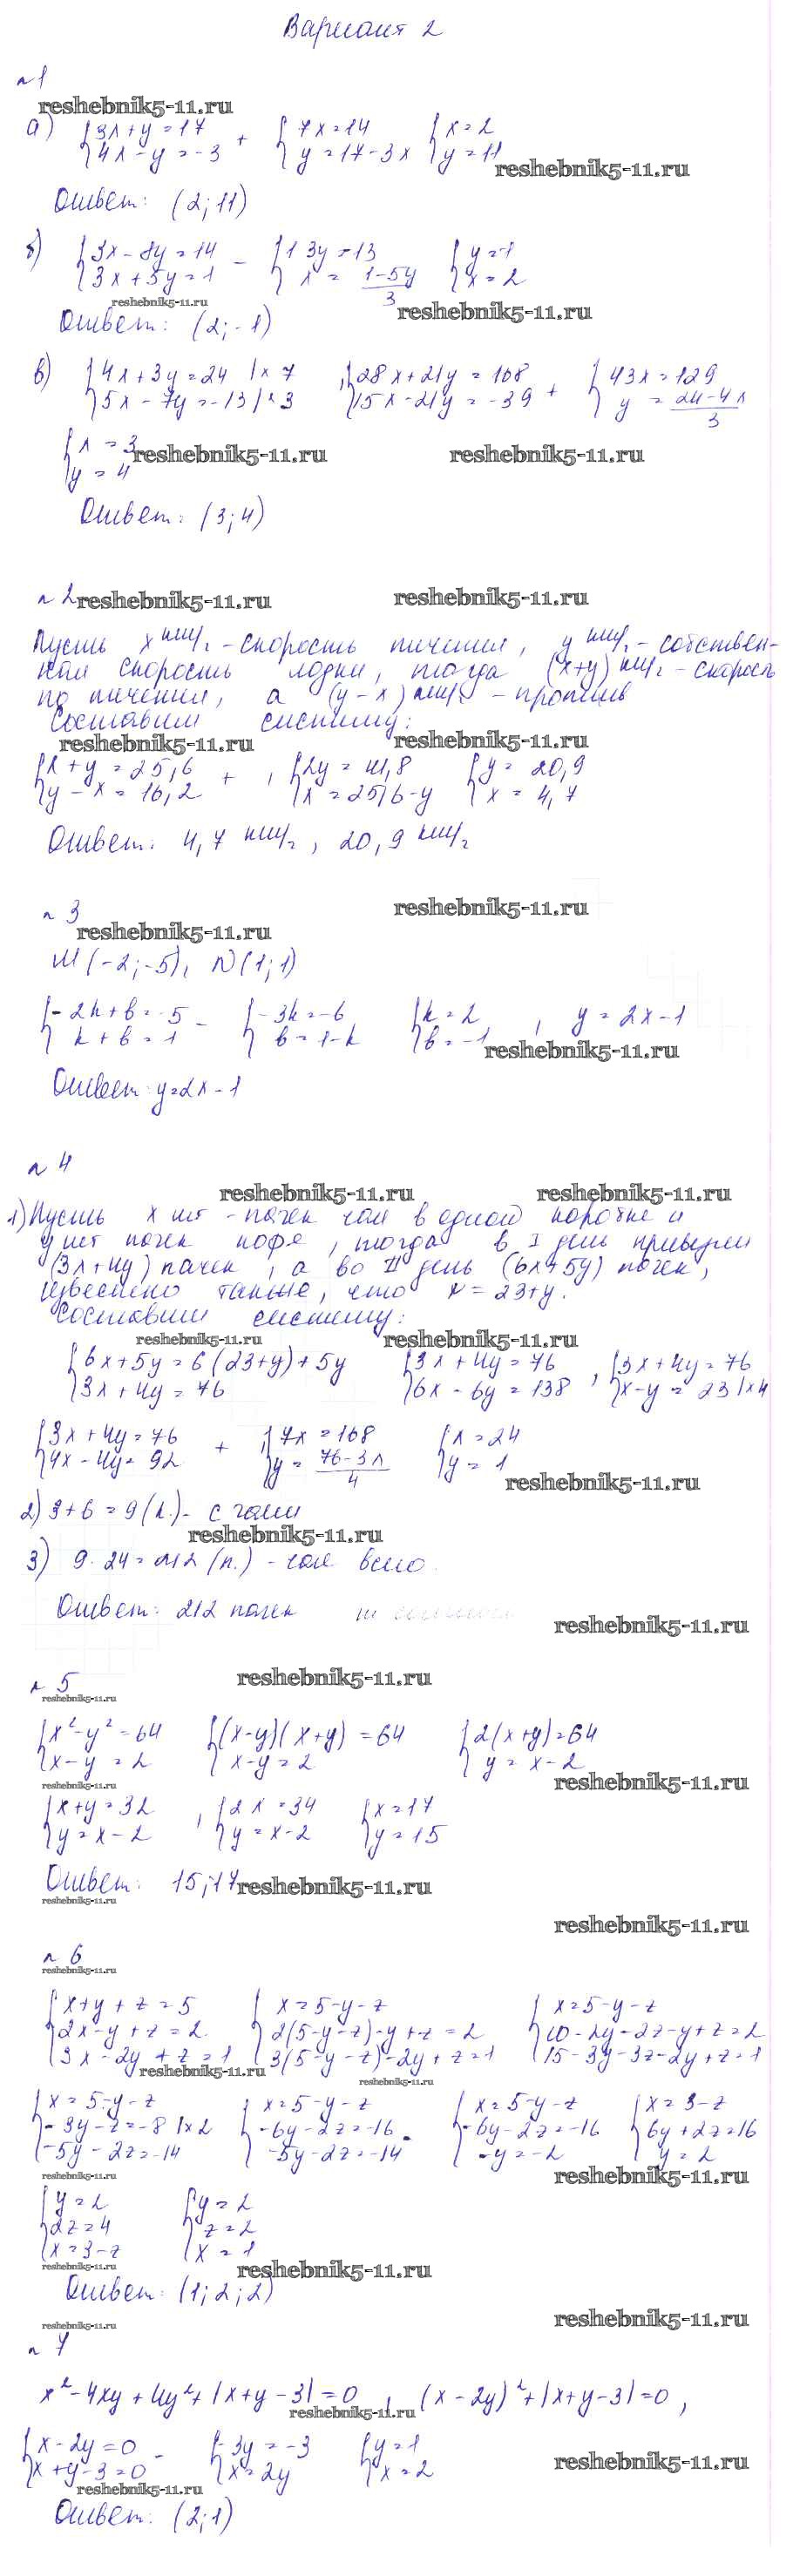 Вариант 2
№1
reshebnik5-11.ru
а) {3x+y=17 + {7x=14 {x=2
{4x-y=-3 {y=17-3x {y=11
reshebnik5-11.ru
Ответ: (2;11)
б) {3x-8y=14 - {13y=13 {y=-1
{3x+5y=1 {x=(1-5y)/3 {x=2
reshebnik5-11.ru
reshebnik5-11.ru
Ответ: (2;-1)
в) {4x+3y=24 |×7 , {28x+21y=168 + {43x=129
{5x-7y=-13 |×3 {15x-21y=-39 {y=(24-4x)/3
{x=3
{y=4
reshebnik5-11.ru reshebnik5-11.ru
Ответ: (3;4)
№2 reshebnik5-11.ru reshebnik5-11.ru
Пусть x км/ч - скорость течения, y км/ч - собствен-
ная скорость лодки, тогда (x+y) км/ч - скорость
по течению, а (y-x) км/ч - против
Составим систему:
reshebnik5-11.ru reshebnik5-11.ru
{x+y=25,6 + , {2y=41,8 {y=20,9
{y-x=16,2 {x=25,6-y {x=4,7
Ответ: 4,7 км/ч, 20,9 км/ч
№3 reshebnik5-11.ru
reshebnik5-11.ru
М(-2;-5), N(1;1)
{-2k+b=-5 - {-3k=-6 {k=2 , y=2x-1
{k+b=1 {b=1-k {b=-1
reshebnik5-11.ru
Ответ: y=2x-1
№4
reshebnik5-11.ru reshebnik5-11.ru
1) Пусть x шт - пачек чая в одной коробке и
y шт пачек кофе, тогда в I день привезли
(3x+4y) пачек, а во II день (6x+5y) пачек,
известно также, что x=23+y.
Составим систему:
reshebnik5-11.ru reshebnik5-11.ru
{6x+5y=6(23+y)+5y {3x+4y=76 , {3x+4y=76
{3x+4y=76 {6x-6y=138 {x-y=23 |×4
{3x+4y=76 + , {7x=168 {x=24
{4x-4y=92 {y=(76-3x)/4 {y=1
reshebnik5-11.ru
2) 3+6=9 (к.) - с чаем
reshebnik5-11.ru
3) 9·24=212 (п.) - чая всего.
Ответ: 212 пачек
reshebnik5-11.ru
№5 reshebnik5-11.ru
reshebnik5-11.ru
{x²-y²=64 {(x-y)(x+y)=64 {2(x+y)=64
{x-y=2 {x-y=2 {y=x-2
reshebnik5-11.ru reshebnik5-11.ru
{x+y=32 , {2x=34 {x=17
{y=x-2 {y=x-2 {y=15
Ответ: 15;17 reshebnik5-11.ru
reshebnik5-11.ru
reshebnik5-11.ru
№6
reshebnik5-11.ru
{x+y+z=5 {x=5-y-z {x=5-y-z
{2x-y+z=2 {2(5-y-z)-y+z=2 {10-2y-2z-y+z=2
{3x-2y+z=1 {3(5-y-z)-2y+z=1 {15-3y-3z-2y+z=1
reshebnik5-11.ru reshebnik5-11.ru
{x=5-y-z {x=5-y-z {x=5-y-z {x=3-z
{-3y-z=-8 |×2 {-6y-2z=-16 - {-6y-2z=-16 {6y+2z=16
{-5y-2z=-14 {-5y-2z=-14 {-y=-2 {y=2
reshebnik5-11.ru reshebnik5-11.ru
{y=2 {y=2
{2z=4 {z=2
{x=3-z {x=1
reshebnik5-11.ru reshebnik5-11.ru
Ответ: (1;2;2)
reshebnik5-11.ru reshebnik5-11.ru
№7
x²-4xy+4y²+|x+y-3|=0 , (x-2y)²+|x+y-3|=0,
reshebnik5-11.ru
{x-2y=0 - {-3y=-3 {y=1
{x+y-3=0 {x=2y {x=2
reshebnik5-11.ru
reshebnik5-11.ru
Ответ: (2;1)